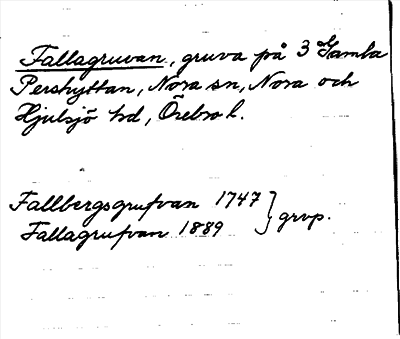 Fallagruvan, gruva på 3 Gamla
Pershyttan, Nora sn, Nora och
Hjulsjö hd, Örebro l.
Fallbergsgrufvan 1747 } grvp.
Fallagrufvan 1889